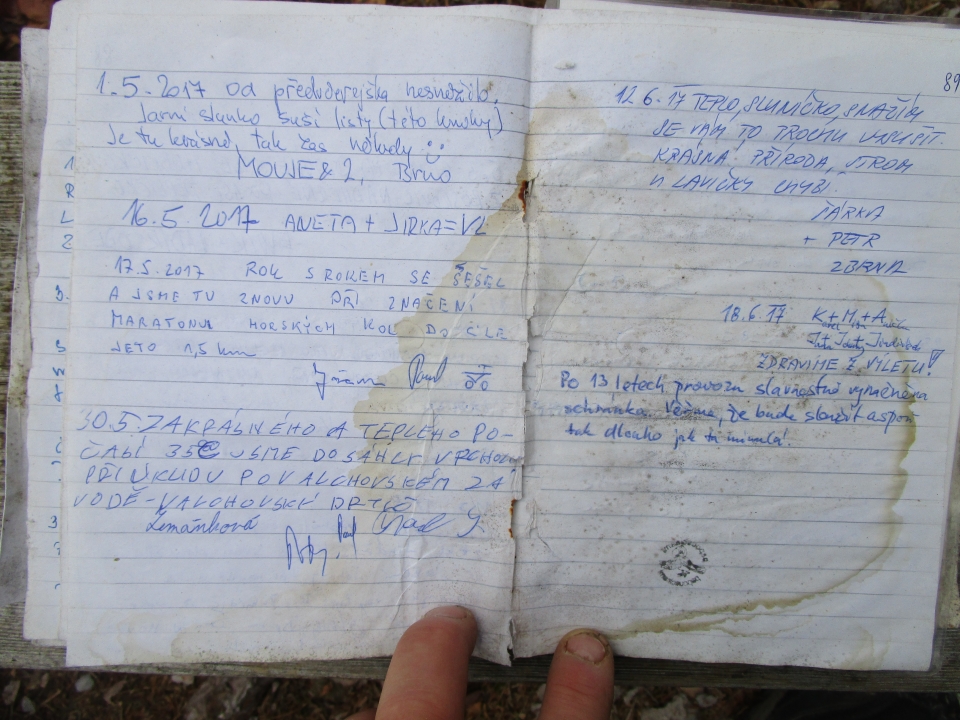 1.5.2017 od předvčerejška nesněžilo,
Jarní slunko suší listy (této knihy)
Je tu krásně, tak zas někdy
2, Brno
16.5.2017 ANETA + JIRKA = VL
17.5.2017 ROK S ROKEM SE SEŠEL
A JSME TU ZNOVU PŘI ZNAČENÍ
MARATONU HORSKÝCH KOL DO CÍLE
JEŠTĚ 1,5 km
30.5. ZA KRÁSNÉHO A TEPLÉHO PO-
ČASÍ 35°C JSME DOSÁHLI VRCHOLU
PŘI ÚKLIDU PO VALCHOVSKÉM ZÁ
VODĚ - VALCHOVSKÝ DRTIČ
Zemánková
89
12.6.17 TEPLO, SLUNÍČKO, SNAŽÍM
SE VÁM TO TROCHU VYSUŠIT.
KRÁSNÁ PŘÍRODA, STROM
U LAVIČKY CHYBÍ.
ŠÁRKA
+ PETR
Z BRNA
18.6.17 K+M+A
ZDRAVÍME Z VÝLETU!
Po 13 letech provozu slavnostně vyměněna
schránka. Věříme, že bude sloužit aspoň
tak dlouho jak ta minulá!